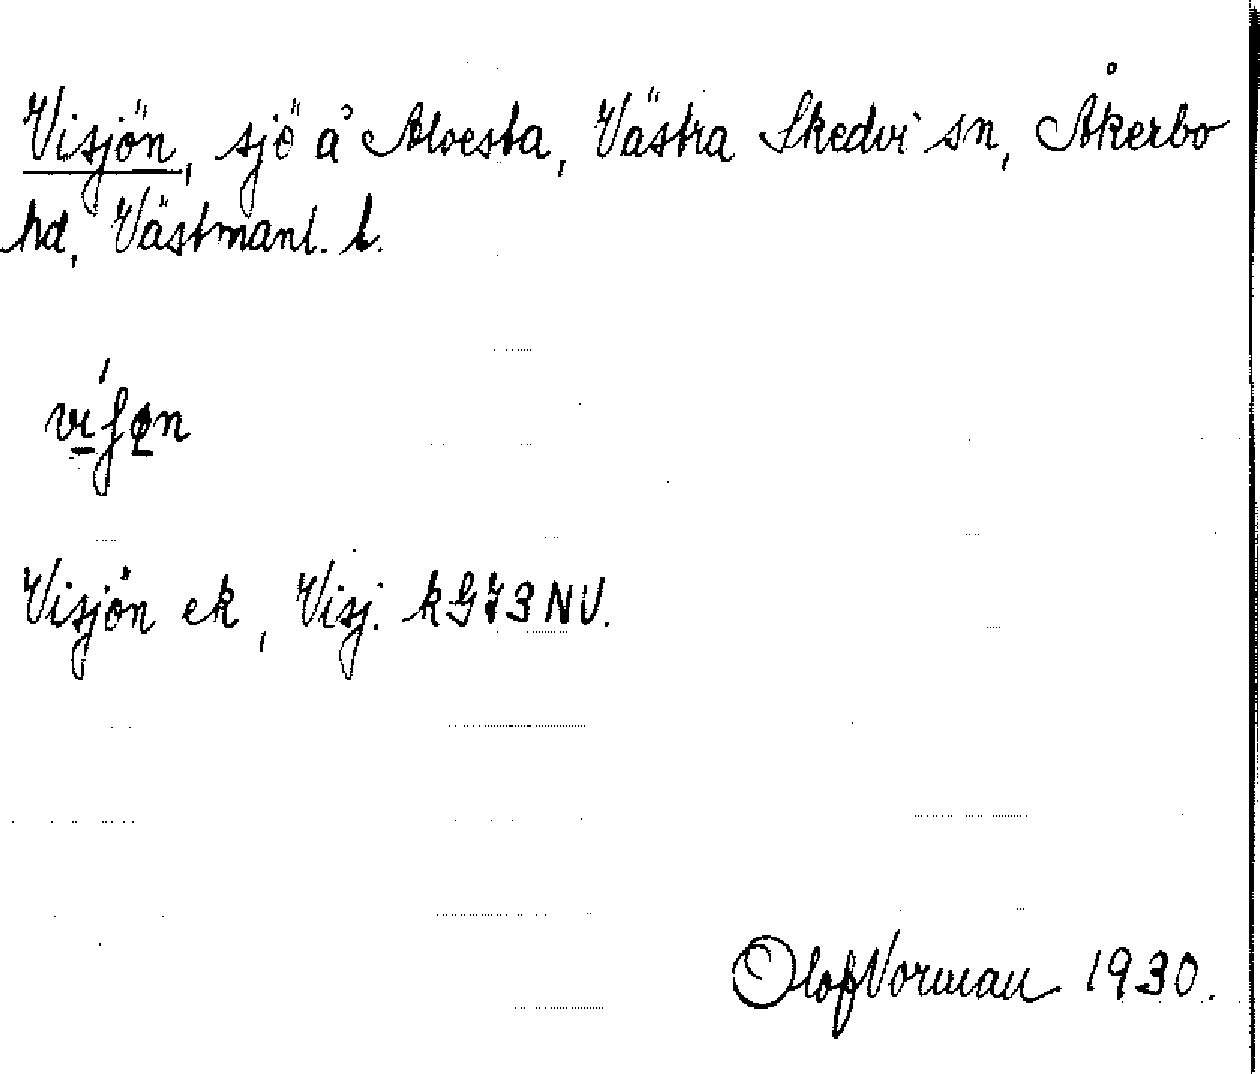 Visjön, sjö å Alvesta, Västra Skedvi sn, Åkerbo
hd, Västmanl. l.
Visjön ek, Visj. kG73NV.
Olof Vorman 1930.